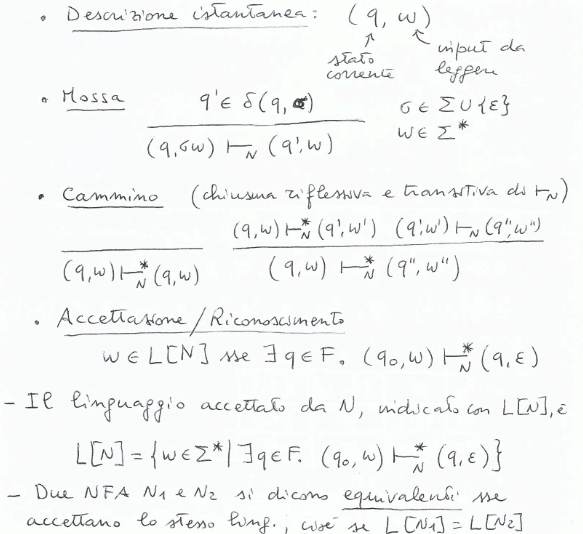 • Descrizione istantanea: (q, w)
↑ ↖
stato corrente input da leggere
• Mossa q' ∈ δ(q, σ) σ ∈ Σ ∪ {ε}
(q, σw) ⊢_N (q', w) w ∈ Σ*
• Cammino (chiusura riflessiva e transitiva di ⊢_N)
(q, w) ⊢*_N (q', w') (q', w') ⊢_N (q'', w'')
(q, w) ⊢*_N (q, w) (q, w) ⊢*_N (q'', w'')
• Accettazione/Riconoscimento
w ∈ L[N] sse ∃q ∈ F. (q₀, w) ⊢*_N (q, ε)
- Il linguaggio accettato da N, indicato con L[N], è
L[N] = {w ∈ Σ* | ∃q ∈ F. (q₀, w) ⊢*_N (q, ε)}
- Due NFA N1 e N2 si dicono equivalenti sse
accettano lo stesso ling., cioè se L[N1] = L[N2]